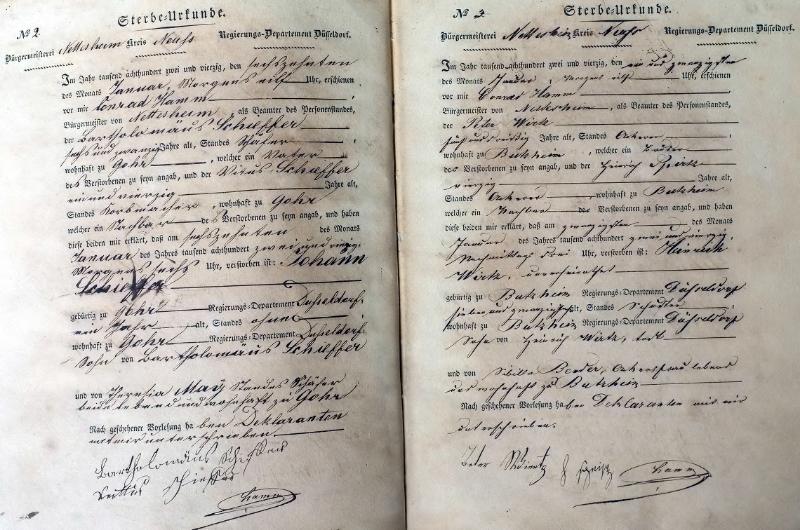 No 2
Sterbe-Urkunde.
Bürgermeisterei Nettesheim Kreis Neuss Regierungs-Departement Düsseldorf.
Im Jahr tausend achthundert zwei und vierzig, den sechszehnten
des Monats Januar, Morgens eilf Uhr, erschienen
vor mir Conrad Hamm
Bürgermeister von Nettesheim, als Beamter des Personenstandes,
der Bartholomäus Schieffer
sechs und zwanzig Jahre alt, Standes Schäfer
wohnhaft zu Gohr, welcher ein Vater
des Verstorbenen zu seyn angab, und der Vitus Schieffer
ein und vierzig Jahre alt,
Standes Korbmacher, wohnhaft zu Gohr
welcher ein Nachbar des Verstorbenen zu seyn angab, und haben
diese beiden mir erklärt, daß am sechszehnten des Monats
Januar des Jahrs tausend achthundert zwei und vierzig,
Morgens sechs Uhr, verstorben ist: Johann
Schieffer
gebürtig zu Gohr Regierungs-Departement Düsseldorf
ein Jahr alt, Standes ohne
wohnhaft zu Gohr Regierungs-Departement Düsseldorf
Sohn von Bartholomäus Schieffer
und von Theresia May Standes Schäfer
beide lebend und wohnhaft zu Gohr
Nach geschehener Vorlesung haben Deklaranten
mit mir unterschrieben
Bartholomäus Schieffer
Schieffer
Hamm
No 3
Sterbe-Urkunde.
Bürgermeisterei Nettesheim Kreis Neuss Regierungs-Departement Düsseldorf.
Im Jahr tausend achthundert zwei und vierzig, den ein und zwanzigsten
des Monats Januar, Morgens eilf Uhr, erschienen
vor mir Conrad Hamm
Bürgermeister von Nettesheim, als Beamter des Personenstandes,
der Peter Wirtz
fünf und dreißig Jahre alt, Standes Ackerer
wohnhaft zu Butzheim, welcher ein Bruder
des Verstorbenen zu seyn angab, und der Heinrich
vierzig Jahre alt,
Standes Ackerer, wohnhaft zu Butzheim
welcher ein Nachbar des Verstorbenen zu seyn angab, und haben
diese beiden mir erklärt, daß am zwanzigsten des Monats
Januar des Jahres tausend achthundert zwei und vierzig,
Nachmittags drei Uhr, verstorben ist: Heinrich
Wirtz, unverheirathet
gebürtig zu Butzheim Regierungs-Departement Düsseldorf
sieben und zwanzig Jahre alt, Standes
wohnhaft zu Butzheim Regierungs-Departement Düsseldorf
Sohn von Heinrich Wirtz, todt
und von Sibilla Ackersfrau lebend
und wohnhaft zu Butzheim
Nach geschehener Vorlesung haben Deklaranten mit mir
unterschrieben.
Peter
Hamm